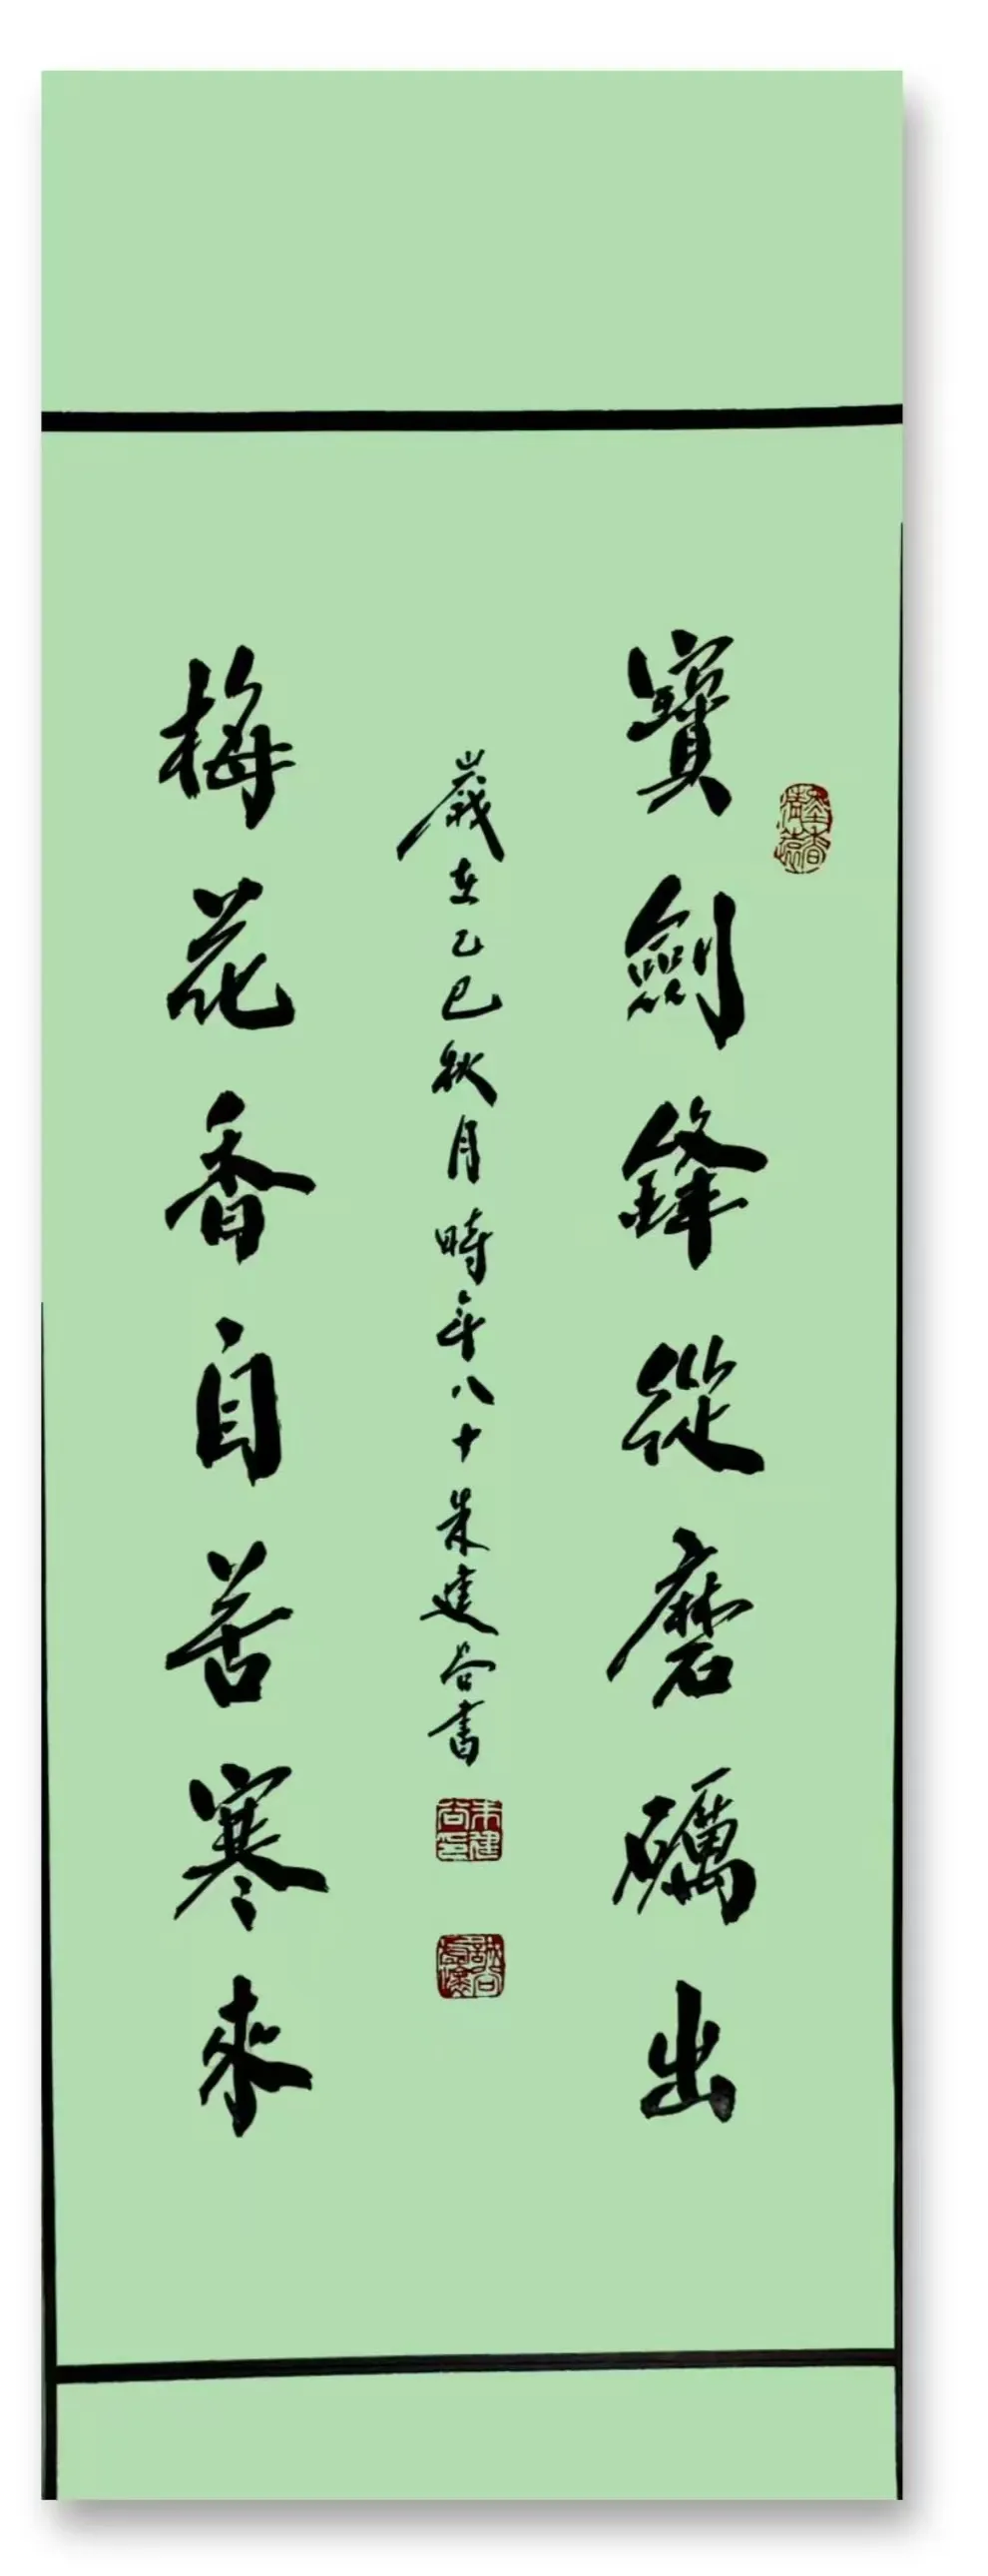 寶劍鋒從磨礪出
歲在乙巳秋月時年八十朱建谷書
梅花香自苦寒來